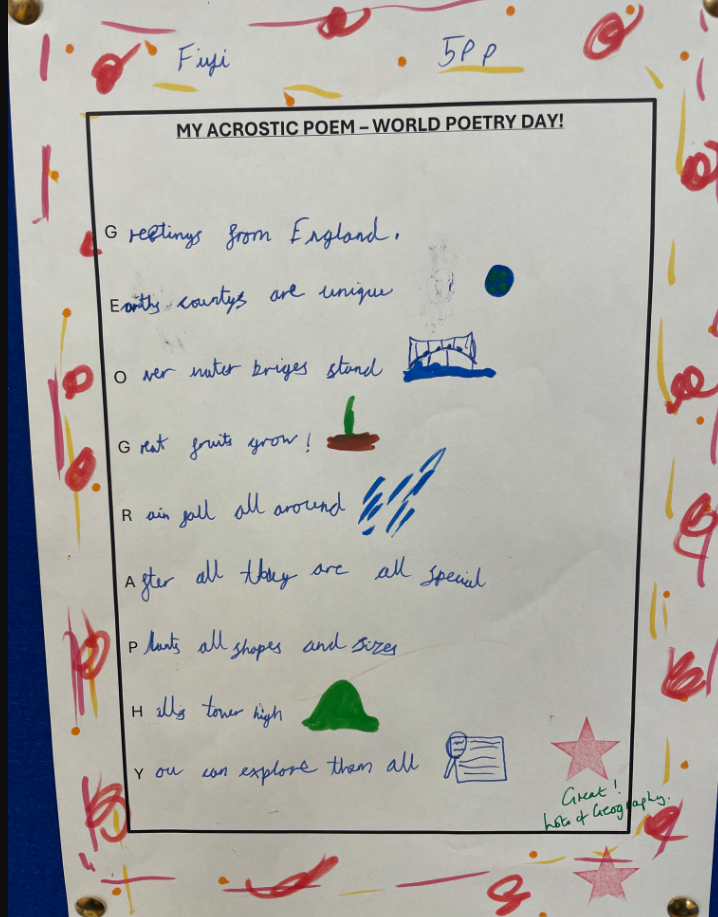 Fiji 5PP
MY ACROSTIC POEM – WORLD POETRY DAY!
Greetings from England.
Earths countys are unique
Over water briges stand
Great fruits grow!
Rain fall all around
After all they are all special
Plants all shapes and sizes
Hills tower high
You can explore them all
Great!
Lots of Geography.